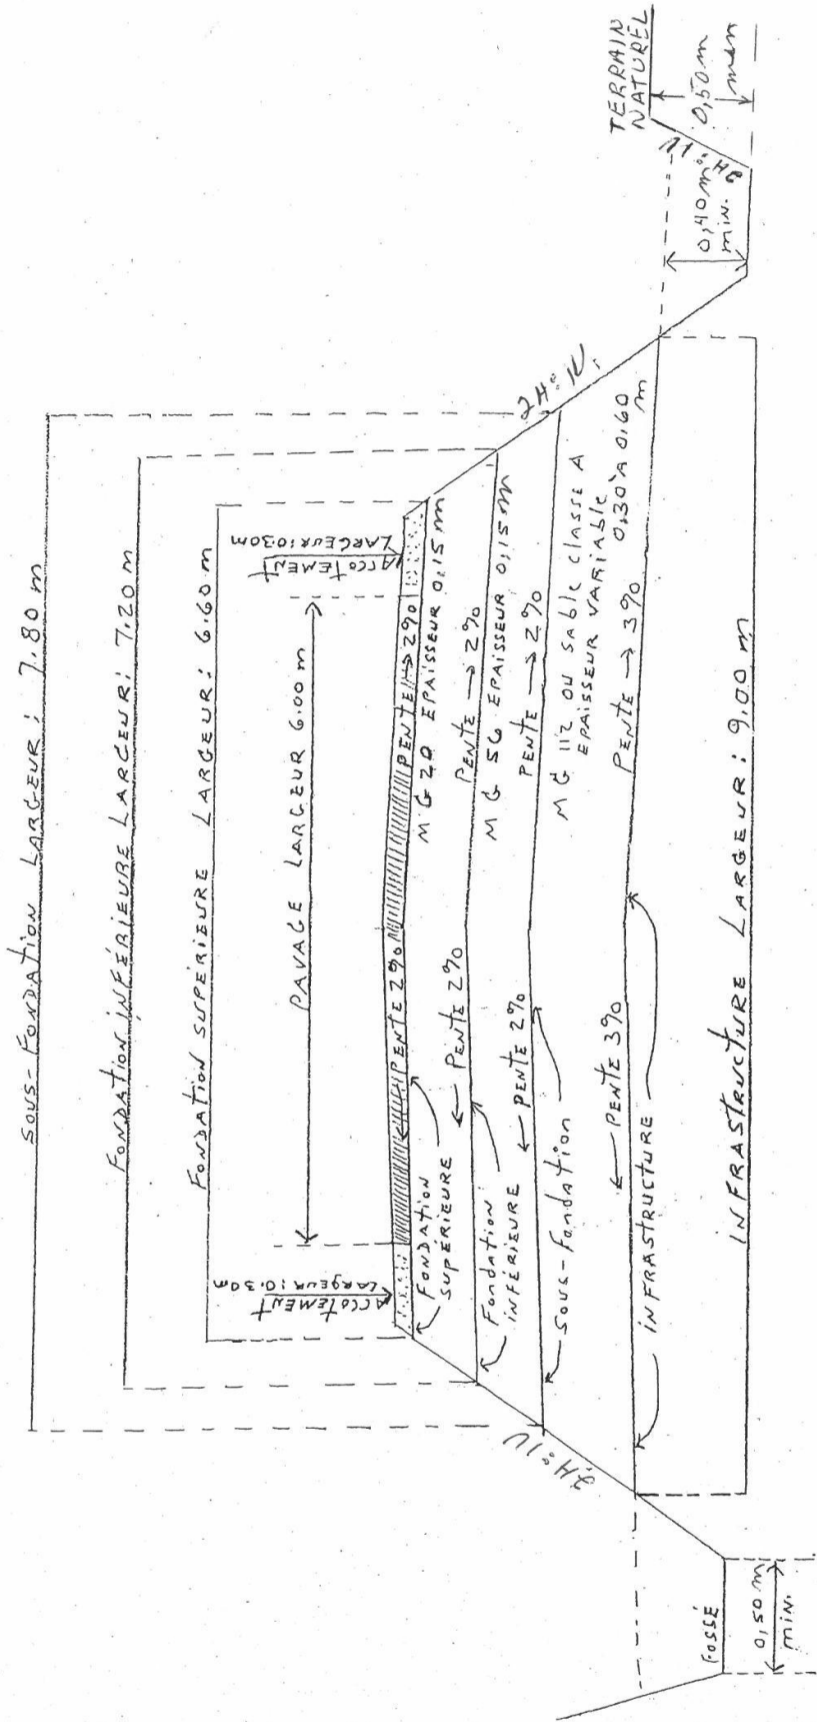 SOUS-FONDATION LARGEUR : 7.80 m
FONDATION INFÉRIEURE LARGEUR : 7.20 m
FONDATION SUPÉRIEURE LARGEUR : 6.60 m
ACCOTEMENT
LARGEUR : 0.30 m
PAVAGE LARGEUR 6.00 m
ACCOTEMENT
LARGEUR : 0.30 m
PENTE 2%
PENTE → 2%
FONDATION
SUPÉRIEURE
MG 20 EPAISSEUR 0.15 m
← PENTE 2%
PENTE → 2%
Fondation
INFÉRIEURE
MG 56 EPAISSEUR 0,15 m
← PENTE 2%
PENTE → 2%
2H : 1V
2H : 1V
SOUS-Fondation
MG 112 OU SABLE CLASSE A
EPAISSEUR VARIABLE
0,30 À 0,60
m
← PENTE 3%
PENTE → 3%
INFRASTRUCTURE
INFRASTRUCTURE LARGEUR : 9.00 m
FOSSÉ
0,50 m
MIN.
0,40 m
MIN.
2H : 1V
TERRAIN
NATUREL
0,50 m